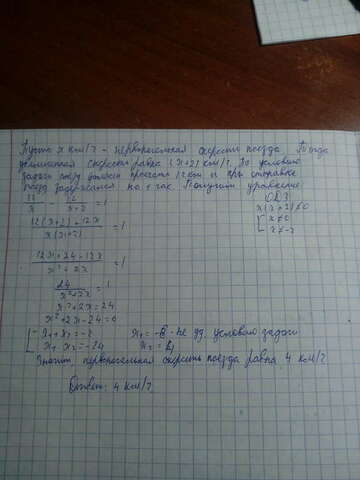 Пусть x км/ч - первоначальная скорость поезда. Тогда
увеличенная скорость равна (x+2) км/ч. По условию
задачи поезд должен проехать 12 км и при отправке
поезд задержался на 1 час. Получим уравнение
12/x - 12/(x+2) = 1
ОДЗ
x(x+2)≠0
[x≠0
x≠-2
(12(x+2)-12x)/(x(x+2)) = 1
(12x+24-12x)/(x²+2x) = 1
24/(x²+2x) = 1
x²+2x=24
x²+2x-24=0
[x₁+x₂=-2 x₁=-6 - не уд. условию задачи
x₁ x₂=-24 x₂=4
Значит первоначальная скорость поезда равна 4 км/ч
Ответ: 4 км/ч